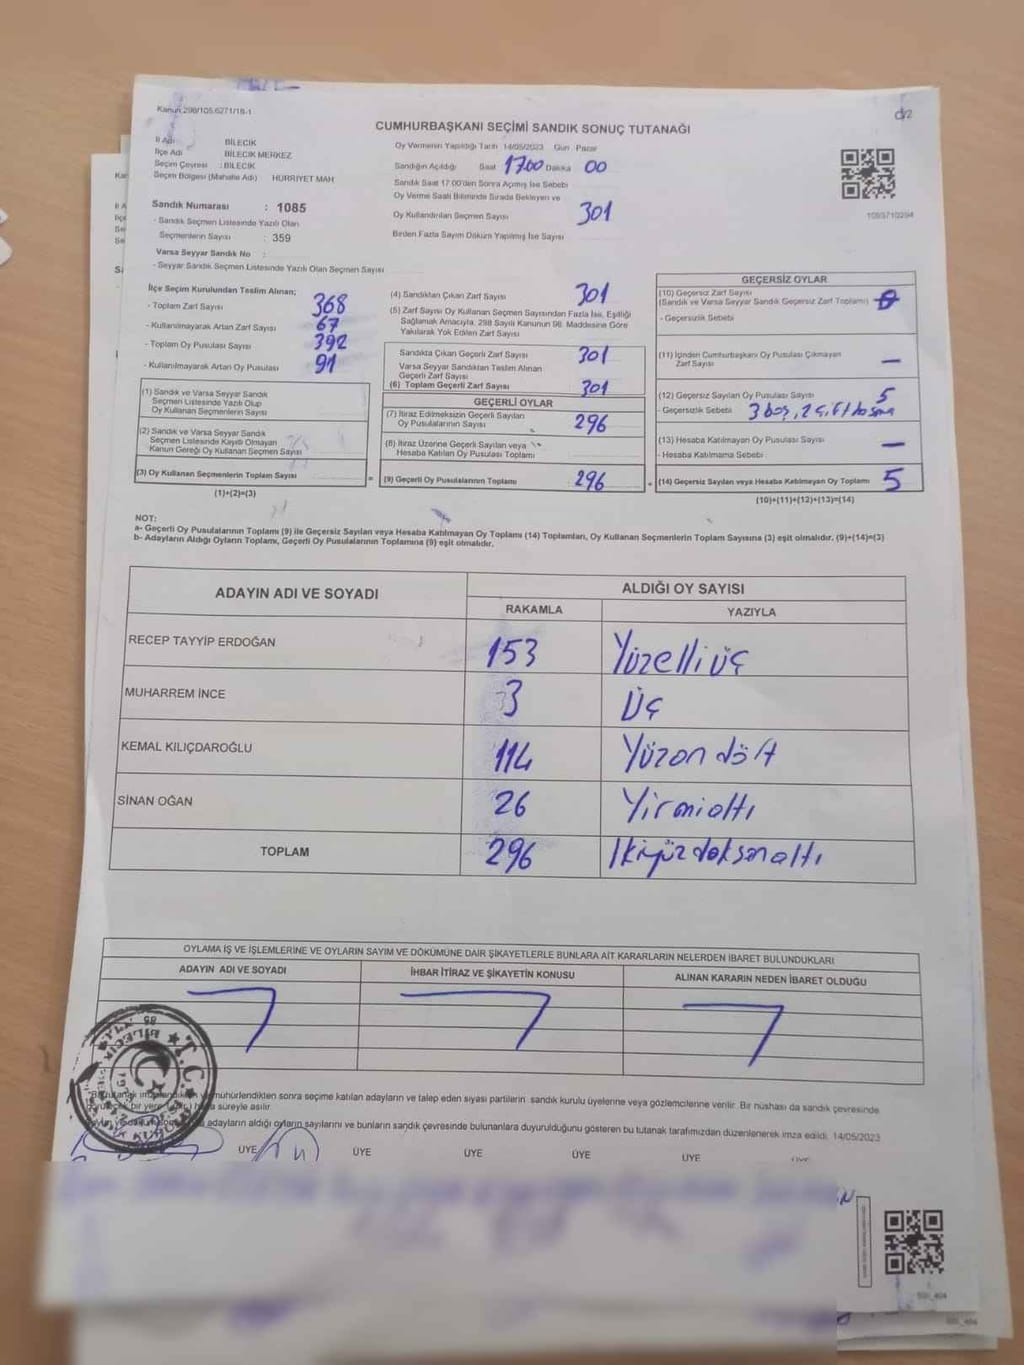 Kanun 298/105,6271/18-1
CUMHURBAŞKANI SEÇİMİ SANDIK SONUÇ TUTANAĞI
İl Adı : BİLECİK
İlçe Adı BİLECİK MERKEZ
Seçim Çevresi : BİLECİK
Seçim Bölgesi (Mahalle Adı) HÜRRİYET MAH
Sandık Numarası : 1085
- Sandık Seçmen Listesinde Yazılı Olan
Seçmenlerin Sayısı : 359
Varsa Seyyar Sandık No :
- Seyyar Sandık Seçmen Listesinde Yazılı Olan Seçmen Sayısı
Oy Vermenin Yapıldığı Tarih 14/05/2023 Gün Pazar
Sandığın Açıldığı Saat 1700 Dakika 00
Sandık Saat 17:00'den Sonra Açılmış İse Sebebi
Oy Verme Saati Bitiminde Sırada Bekleyen ve
Oy Kullandırılan Seçmen Sayısı 301
Birden Fazla Sayım Döküm Yapılmış İse Sayısı
1093710294
İlçe Seçim Kurulundan Teslim Alınan;
- Toplam Zarf Sayısı 368
- Kullanılmayarak Artan Zarf Sayısı 67
- Toplam Oy Pusulası Sayısı 392
- Kullanılmayarak Artan Oy Pusulası 91
(1) Sandık ve Varsa Seyyar Sandık
Seçmen Listesinde Yazılı Olup
Oy Kullanan Seçmenlerin Sayısı
(2) Sandık ve Varsa Seyyar Sandık
Seçmen Listesinde Kaydı Olmayan
Kanun Gereği Oy Kullanan Seçmen Sayısı
(3) Oy Kullanan Seçmenlerin Toplam Sayısı
(1)+(2)=(3)
(4) Sandıktan Çıkan Zarf Sayısı 301
(5) Zarf Sayısı Oy Kullanan Seçmen Sayısından Fazla İse, Eşitliği
Sağlamak Amacıyla, 298 Sayılı Kanunun 98. Maddesine Göre
Yakılarak Yok Edilen Zarf Sayısı
Sandıkta Çıkan Geçerli Zarf Sayısı 301
Varsa Seyyar Sandıktan Teslim Alınan
Geçerli Zarf Sayısı
(6) Toplam Geçerli Zarf Sayısı 301
GEÇERLİ OYLAR
(7) İtiraz Edilmeksizin Geçerli Sayılan
Oy Pusulalarının Sayısı 296
(8) İtiraz Üzerine Geçerli Sayılan veya
Hesaba Katılan Oy Pusulası Toplamı
= (9) Geçerli Oy Pusulalarının Toplamı 296
GEÇERSİZ OYLAR
(10) Geçersiz Zarf Sayısı
(Sandık ve Varsa Seyyar Sandık Geçersiz Zarf Toplamı)
- Geçersizlik Sebebi
(11) İçinden Cumhurbaşkanı Oy Pusulası Çıkmayan
Zarf Sayısı —
(12) Geçersiz Sayılan Oy Pusulası Sayısı 5
- Geçersizlik Sebebi 3 boş, 2
(13) Hesaba Katılmayan Oy Pusulası Sayısı —
- Hesaba Katılmama Sebebi
+ (14) Geçersiz Sayılan veya Hesaba Katılmayan Oy Toplamı 5
(10)+(11)+(12)+(13)=(14)
NOT:
a- Geçerli Oy Pusulalarının Toplamı (9) ile Geçersiz Sayılan veya Hesaba Katılmayan Oy Toplamı (14) Toplamları, Oy Kullanan Seçmenlerin Toplam Sayısına (3) eşit olmalıdır. (9)+(14)=(3)
b- Adayların Aldığı Oyların Toplamı, Geçerli Oy Pusulalarının Toplamına (9) eşit olmalıdır.
ADAYIN ADI VE SOYADI ALDIĞI OY SAYISI
RAKAMLA YAZIYLA
RECEP TAYYİP ERDOĞAN 153 Yüzelliüç
MUHARREM İNCE 3 Üç
KEMAL KILIÇDAROĞLU 114 Yüzon dört
SİNAN OĞAN 26 Yirmialtı
TOPLAM 296 İkiyüzdoksanaltı
OYLAMA İŞ VE İŞLEMLERİNE VE OYLARIN SAYIM VE DÖKÜMÜNE DAİR ŞİKAYETLERLE BUNLARA AİT KARARLARIN NELERDEN İBARET BULUNDUKLARI
ADAYIN ADI VE SOYADI İHBAR İTİRAZ VE ŞİKAYETİN KONUSU ALINAN KARARIN NEDEN İBARET OLDUĞU
mühürlendikten sonra seçime katılan adayların ve talep eden siyasi partilerin sandık kurulu üyelerine veya gözlemcilerine verilir. Bir nüshası da sandık çevresinde
süreyle asılır.
adayların aldığı oyların sayılarını ve bunların sandık çevresinde bulunanlara duyurulduğunu gösteren bu tutanak tarafımızdan düzenlenerek imza edildi. 14/05/2023
ÜYE ÜYE ÜYE ÜYE ÜYE